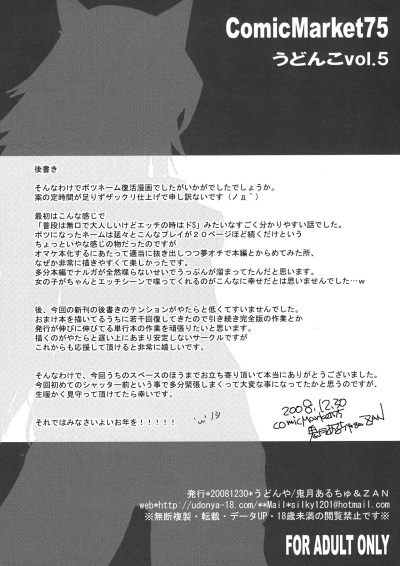 ComicMarket75
うどんこvol.5
後書き
そんなわけでボツネーム復活漫画でしたがいかがでしたでしょうか。
案の定時間が足りずザックリ仕上げで申し訳ないです（ノд｀）
最初はこんな感じで
「普段は無口で大人しいけどエッチの時はドS」みたいなすごく分かりやすい話でした。
ボツになったネームは延々とこんなプレイが２０ページほど続くだけという
ちょっといやな感じの物だったのですが
オマケ本化するにあたって適当に抜き出しつつ夢オチで本編とからめてみた所、
なぜか非常に描きやすくて楽しかったです。
多分本編でナルガが全然喋らないせいでうっぷんが溜まってたんだと思います。
女の子がちゃんとエッチシーンで喋ってくれるのがこんなに幸せだとは思いませんでした…w
後、今回の新刊の後書きのテンションがやたらと低くてすいませんでした。
おまけ本を描いてるうちに若干回復してきたので引き続き完全版の作業とか
発行が伸びに伸びてる単行本の作業を頑張りたいと思います。
描くのがやたらと遅い上にあまり安定しないサークルですが
これからも応援して頂けると非常に嬉しいです。
そんなわけで、今回うちのスペースのほうまでお立ち寄り頂いて本当にありがとうございました。
今回初めてのシャッター前という事で多分緊張しまくって大変な事になってたかと思うのですが、
生暖かく見守って頂けてたら幸いです。
それではみなさいよいお年を！！！！！
2008.12.30
comicMarket75
鬼月あるちゅ&ZAN
発行*20081230*うどんや/鬼月あるちゅ＆ZAN
web*http://udonya-18.com/**Mail*silky1201@hotmail.com
※無断複製・転載・データUP・18歳未満の閲覧禁止です※
FOR ADULT ONLY